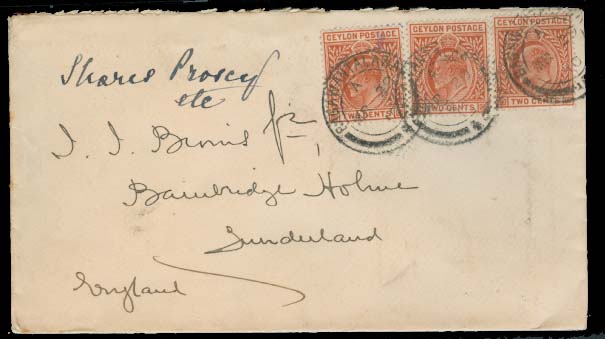 CEYLON POSTAGE CEYLON POSTAGE CEYLON POSTAGE
TWO CENTS TWO CENTS TWO CENTS
Shares Proscy
etc
J. J. Jr,
Bainbridge Holme
Sunderland
England